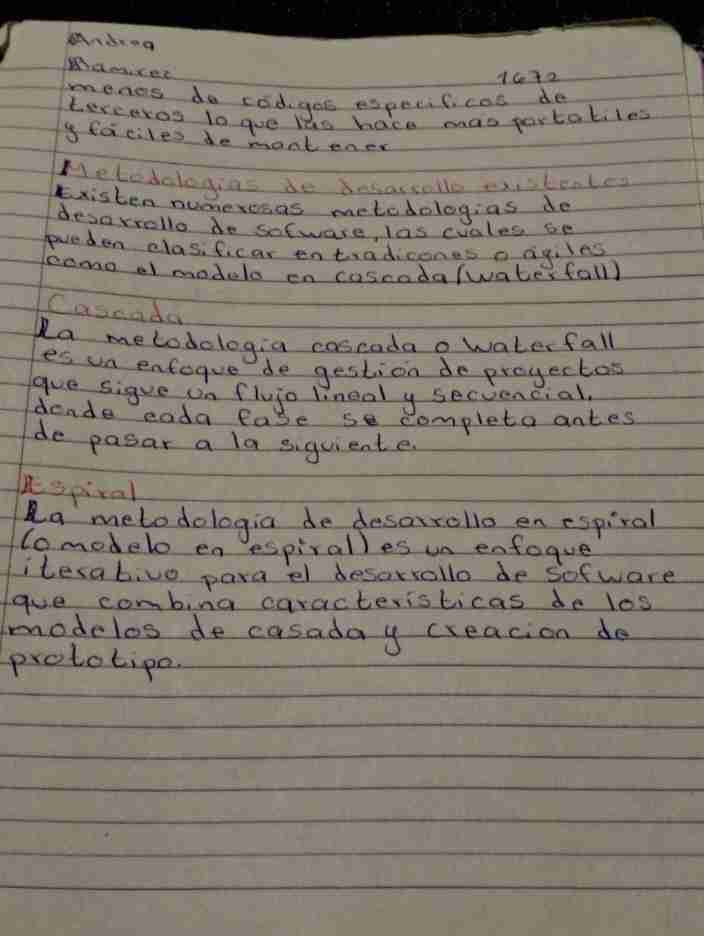 Andrea
Ramirez 1672
menos de códigos especificos de
terceros lo que las hace mas portatiles
y fáciles de mantener
Metodologías de desarrollo existentes
Existen numerosas metodologias de
desarrollo de sofware, las cuales se
pueden clasificar en tradicones o ágiles
como el modelo en cascada (waterfall)
Cascada
La metodologia cascada o waterfall
es un enfoque de gestión de proyectos
que sigue un flujo lineal y secuencial,
donde cada fase se completa antes
de pasar a la siguiente.
Espiral
La metodologia de desarrollo en espiral
(o modelo en espiral) es un enfoque
iterativo para el desarrollo de sofware
que combina características de los
modelos de casada y creacion de
prototipo.